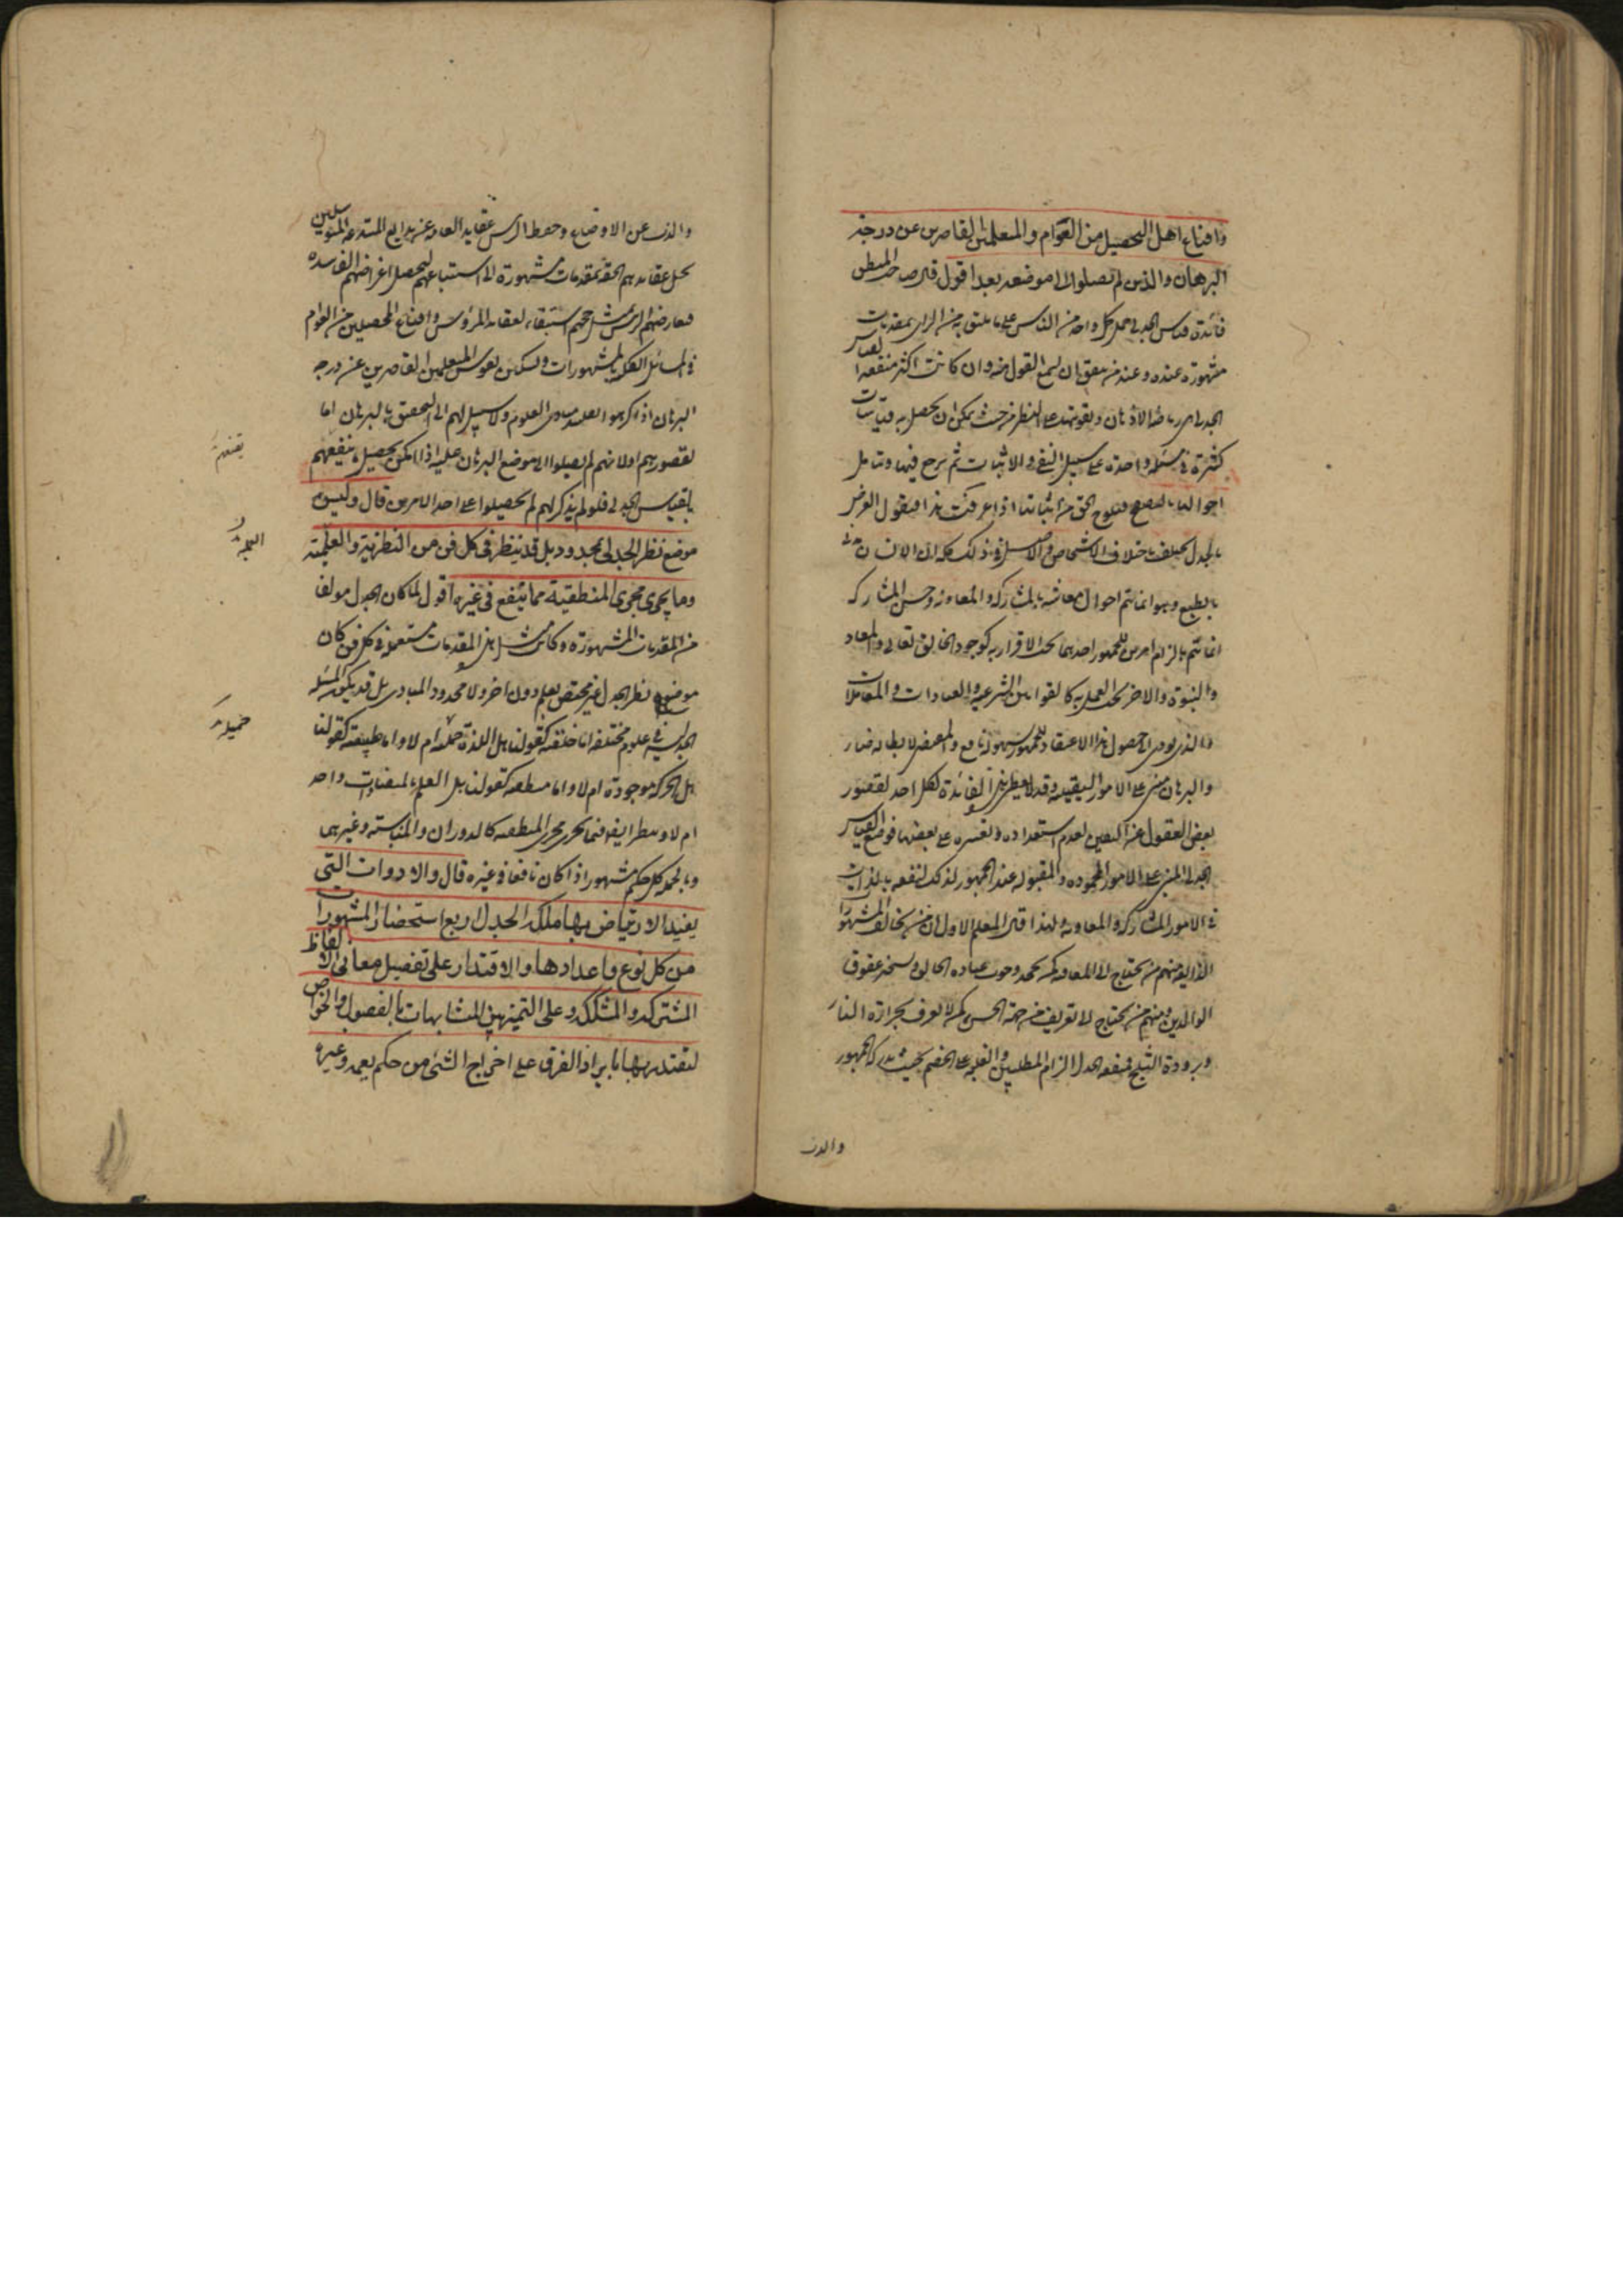 واقناع اهل التحصيل من العوام والمتعلمين القاصرين عن درجة
البرهان والذين لم يصلوا الى موضعه بعد اقول قال صاحب المنطق
فائدة قياس الجدلى حمل كل واحد من الناس على ما يليق به من الراى بمقدمات
مشهورة عنده وعند من يتفق ان يسمع القول منه وان كانت اكثر منفعة القياس
الجدلى هى رياضة الاذهان وتقويتها على النظر من حيث يمكن ان يحصل به قياسات
كثيرة فى مسئلة واحدة على سبيل النفى والاثبات ثم يرجع فيها وتتامل
احوالها بالتصفح فيلوح الحق من اثباتها اذا عرفت هذا فنقول الغرض
بالجدل يختلف باختلاف الاشخاص والاصل فى ذلك كله ان الانسان مدنى
بالطبع وهو انما تتم احوال معاشه بالمشاركة والمعاونة وحسن المشاركة
انما تتم بالزام امرين للجمهور احدهما يجب الاقرار به كوجود الخالق تعالى والمعاد
والنبوة والاخر يجب العمل به كالقوانين الشرعية والعبادات والمعاملات
فالذى يودى لحصول هذا الاعتقاد للجمهور بسهولة نافع والمعرض لابطاله ضار
والبرهان مبنى على الامور اليقينية وقد لا يعطى هذه الفائدة لكل احد لقصور
بعض العقول عن اليقين لعدم استعداده وتعسره على بعضها فوضع القياس
الجدلى المبنى على الامور المحمودة والمقبولة عند الجمهور لذلك لنفعه بالذات
فى الامور المشاركة والمعاونة ولهذا قال المعلم الاول ان من يخالف المشهورات
الذايعة منهم من يحتاج الى المعاقبة كمن يجحد وجوب عبادة الخالق ويستحسن عقوق
الوالدين ومنهم من يحتاج الى تعريف من جهة الحس كمن لا يعرف بحرارة النار
وبرودة الثلج فمنفعة الجدل الزام المطلبين والغلبة على الخصم بحيث يدركه الجمهور
والذب
والذب عن الاوضاع وحفظ الرئيس عقايد العامة عن بدايع المبتدعة المتوسلين
بحل عقايدهم الحقة بمقدمات مشهورة الى استتباعهم لتحصيل اغراضهم الفاسدة
فيعارضهم الرئيس بمثل حججهم استبقاء لعقايد المرؤوس واقناع المحصلين من العوام
فى المسائل الفكرية بالمشهورات وتسكين نفوس المتعلمين القاصرين عن درجة
البرهان اذا كرهوا تقليد مبادى العلوم ولا سبيل لهم الى التحقيق بالبرهان اما
لقصورهم او لانهم لم يصلوا الى موضع البرهان عليه اذا امكن تحصيل يقينهم
بالقياس الجدلى فلو لم يذكر لهم لم يحصلوا على احد الامرين قال وليس
موضع نظر الجدلى بمحدود بل قد ينظر فى كل فن من النظرية والعلمية
وما يجرى مجرى المنطقية مما ينفع فى غيره اقول لما كان الجدل مولفا
من المقدمات المشهورة وكان مثل هذه المقدمات مستعملة فى كل فن كان
موضوع نظر الجدل غير مختص بعلم دون اخر ولا محدود المبادى بل قد يكون المسئلة
الجدلية فى علوم مختلفة اما خلقية كقولنا هل اللذة جميلة ام لا واما طبيعية كقولنا
هل الحركة موجودة ام لا واما منطقية كقولنا هل العلم بالمتضادات واحد
ام لا وينظر ايضا فيما يجرى مجرى المنطقية كالدوران والمناسبة وغيرهما
وبالجملة كل حكم مشهور اذا كان نافعا فى غيره قال والادوات التى
يفيد الارتياض بها ملكة الجدل اربع استحضار المشهورات
من كل نوع واعدادها والاقتدار على تفصيل معانى الالفاظ
المشتركة والمشككة وعلى التميز بين المتشابهات بالفصول والخواص
لتقتدر بها بايراد الفرق على اخراج الشئ من حكم يعمه وغيره